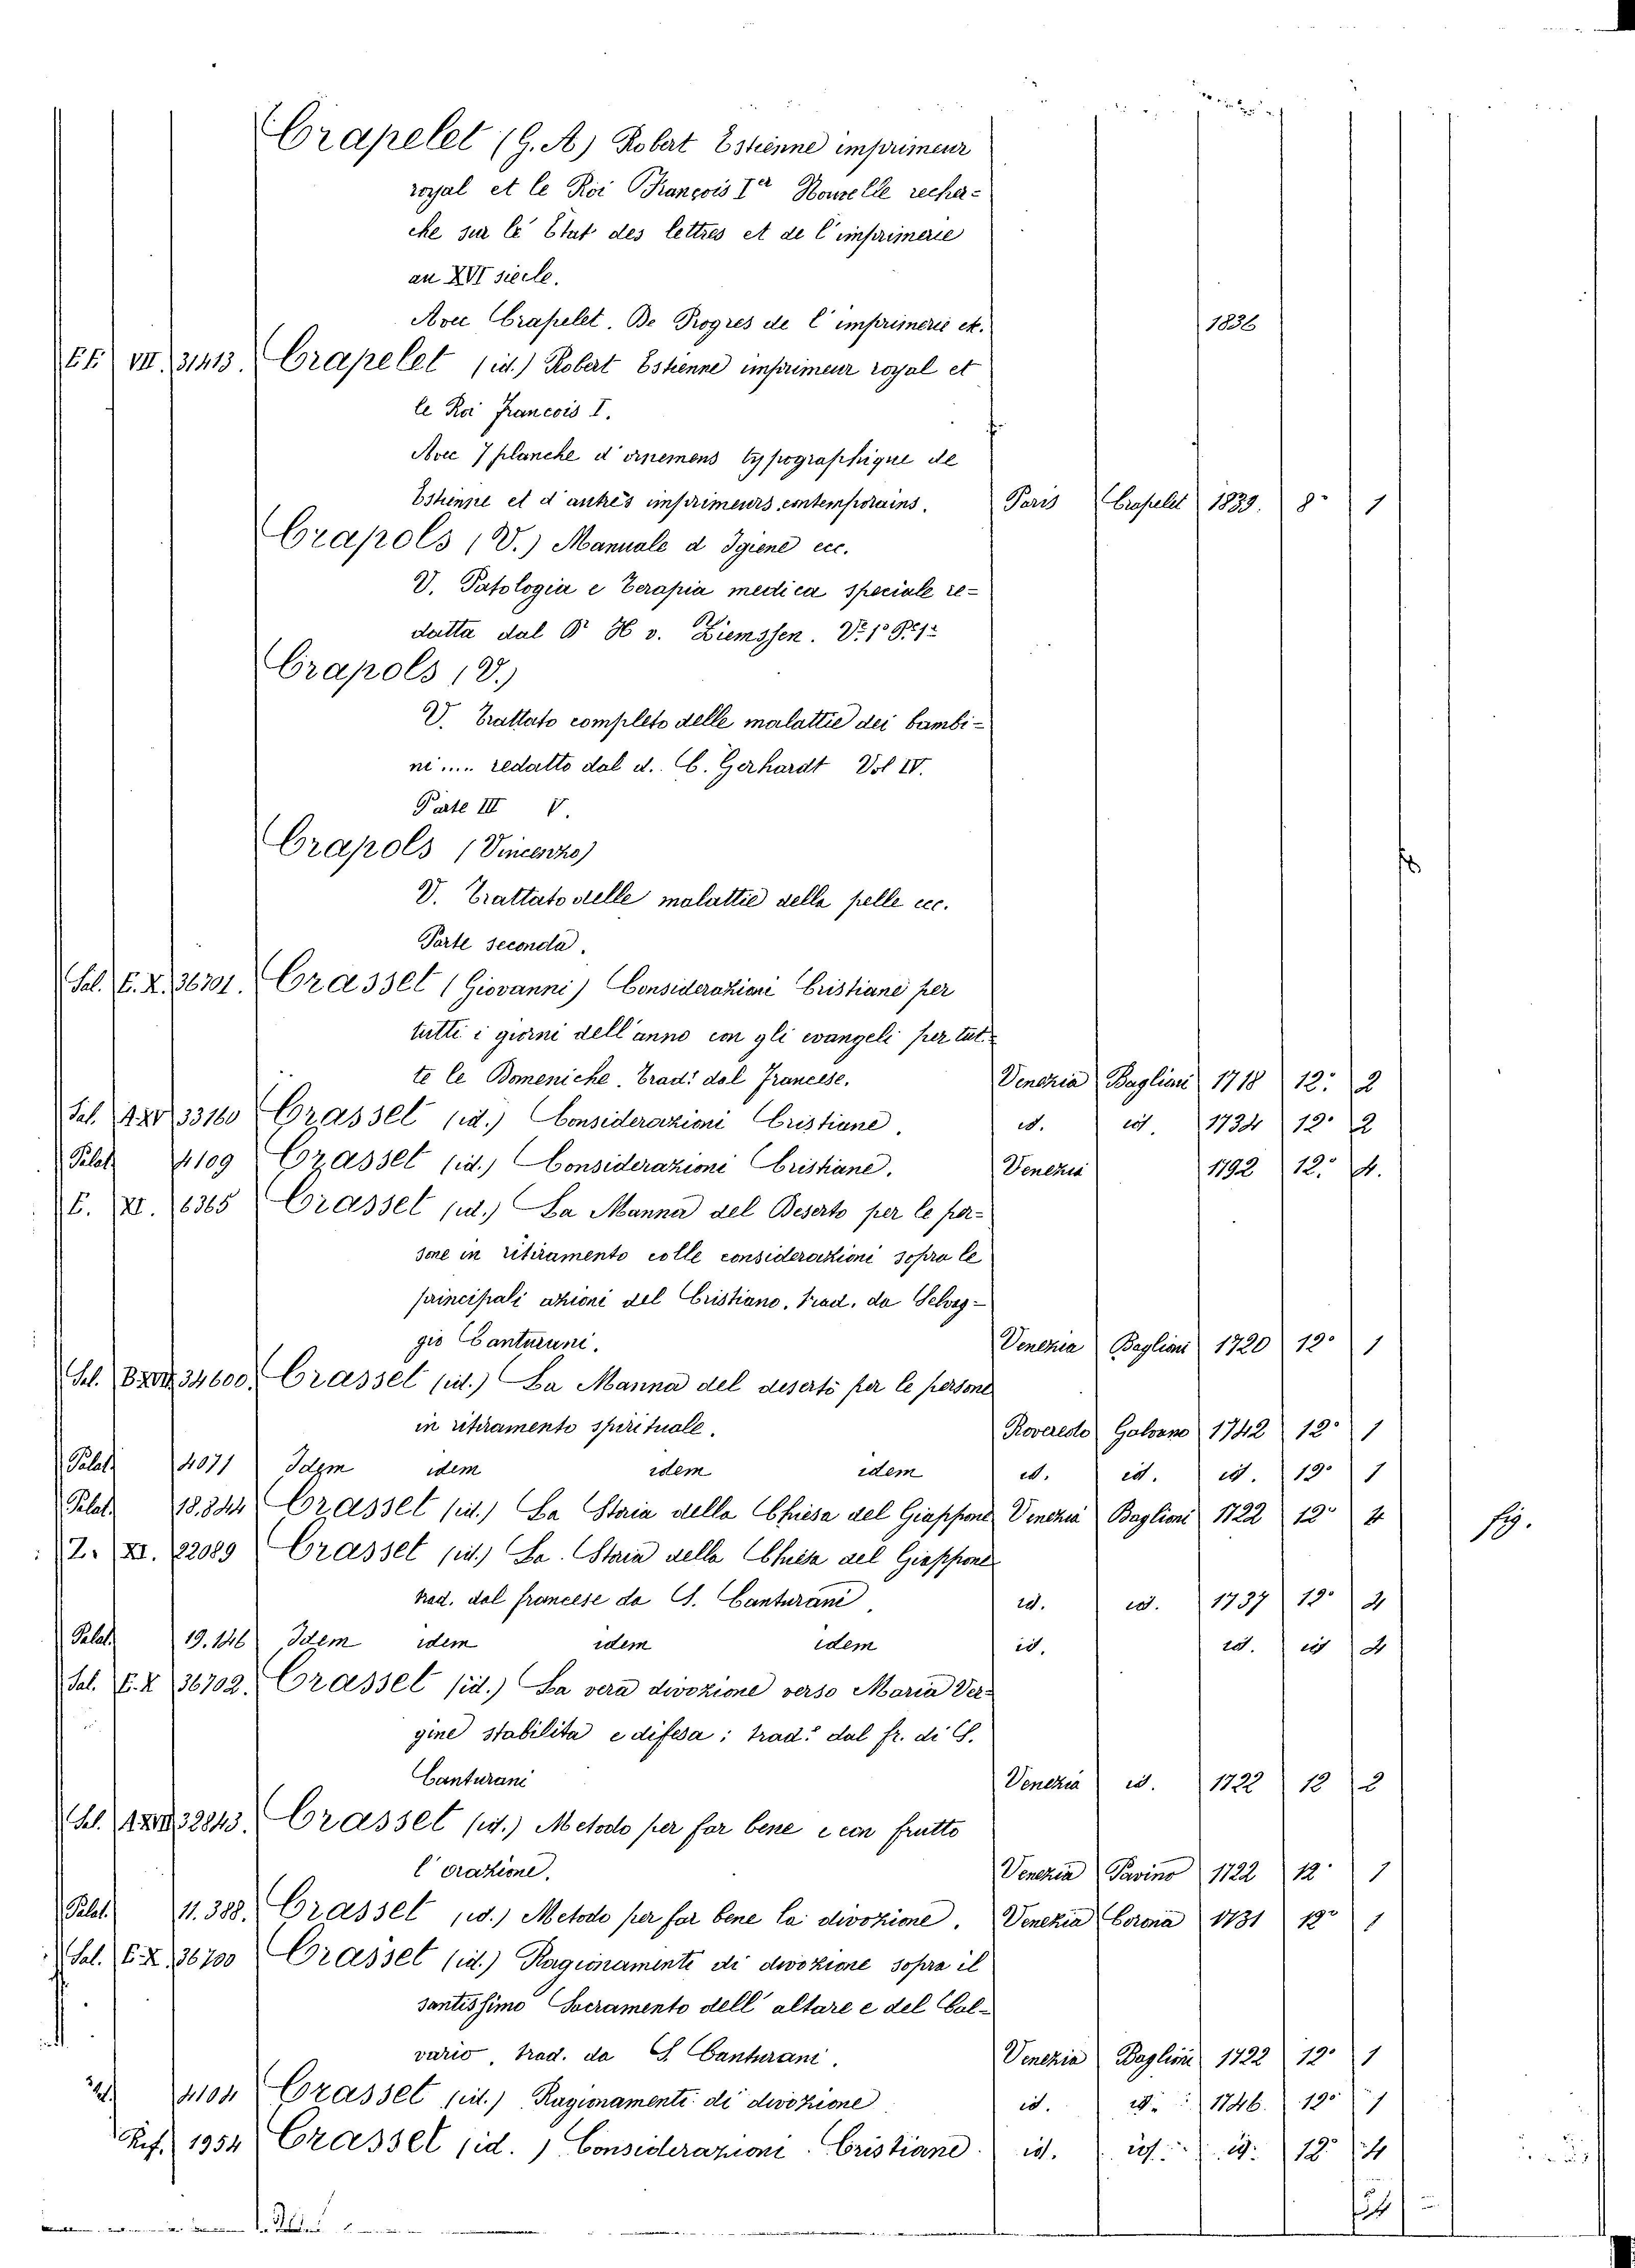 Crapelet (G. A) Robert Estienne imprimeur
royal et le Roi François Ier Nouvelle recher=
che sur le État des lettres et de l'imprimerie
au XVI siecle.
Avec Crapelet. De Progres de l'imprimerie et. 1836
E.F. VII. 31413. Crapelet (id.) Robert Estienne imprimeur royal et
le Roi Francois I.
Avec 7 planche d'ornemens typographique de
Estienne et d'autres imprimeurs contemporains. Paris Crapelet 1839. 8° 1
Crapols (V.) Manuale d Igiene ecc.
V. Patologia e Terapia medica speciale re=
datta dal Dr H v. Ziemssen. V. 1° P. 1a
Crapols (V.)
V. Trattato completo delle malattie dei bambi=
ni .... redatto dal d. C. Gerhardt Vol IV.
Parte III V.
Crapols (Vincenzo)
V. Trattato delle malattie della pelle ecc.
Parte seconda.
Sal. E. X. 36701. Crasset (Giovanni) Considerazioni Cristiane per
tutti i giorni dell'anno con gli evangeli per tut=
te le Domeniche. Trad: dal Francese. Venezia Baglioni 1718 12: 2
Sal. AXV 33160 Crasset (id.) Considerazioni Cristiane. id. id. 1734 12° 2
Palat 4109 Crasset (id.) Considerazioni Cristiane. Venezia 1792 12° 4.
E. XI. 6365 Crasset (id.) La Manna del Deserto per le per=
sone in ritiramento colle considerazioni sopra le
principali azioni del Cristiano. Trad. da Selvag=
gio Canturani. Venezia Baglioni 1720 12° 1
Sal. BXVII 34600. Crasset (id.) La Manna del deserto per le persone
in ritiramento spirituale. Roveredo Galvano 1742 12° 1
Palat 4071 Idem idem idem idem id. id. id. 12° 1
Palat 18.844 Crasset (id.) La Storia della Chiesa del Giappone Venezia Baglioni 1722 12° 4 fig.
Z. XI. 22089 Crasset (id.) La Storia della Chiesa del Giappone
trad. dal francese da S. Canturani. id. id. 1737 12° 4
Palat 19.146 Idem idem idem idem id. id. id 4
Sal. E.X 36702. Crasset (id.) La vera divozione verso Maria Ver=
gine stabilita e difesa: trad: dal fr. di S.
Canturani Venezia id. 1722 12 2
Sal. AXVII 32843. Crasset (id.) Metodo per far bene e con frutto
l'orazione. Venezia Pavino 1722 12 1
Palat. 11.388. Crasset (id.) Metodo per far bene la divozione. Venezia Corona 1731 12° 1
Sal. E.X. 36700 Crasset (id.) Ragionamente di devozione sopra il
santissimo Sacramento dell'altare e del Cal=
vario, trad. da S. Canturani. Venezia Baglioni 1722 12° 1
4104 Crasset (id.) Ragionamenti di divozione id. id. 1746. 12° 1
Rif. 1954 Crasset (id.) Considerazioni Cristiane id. id. id. 12° 4